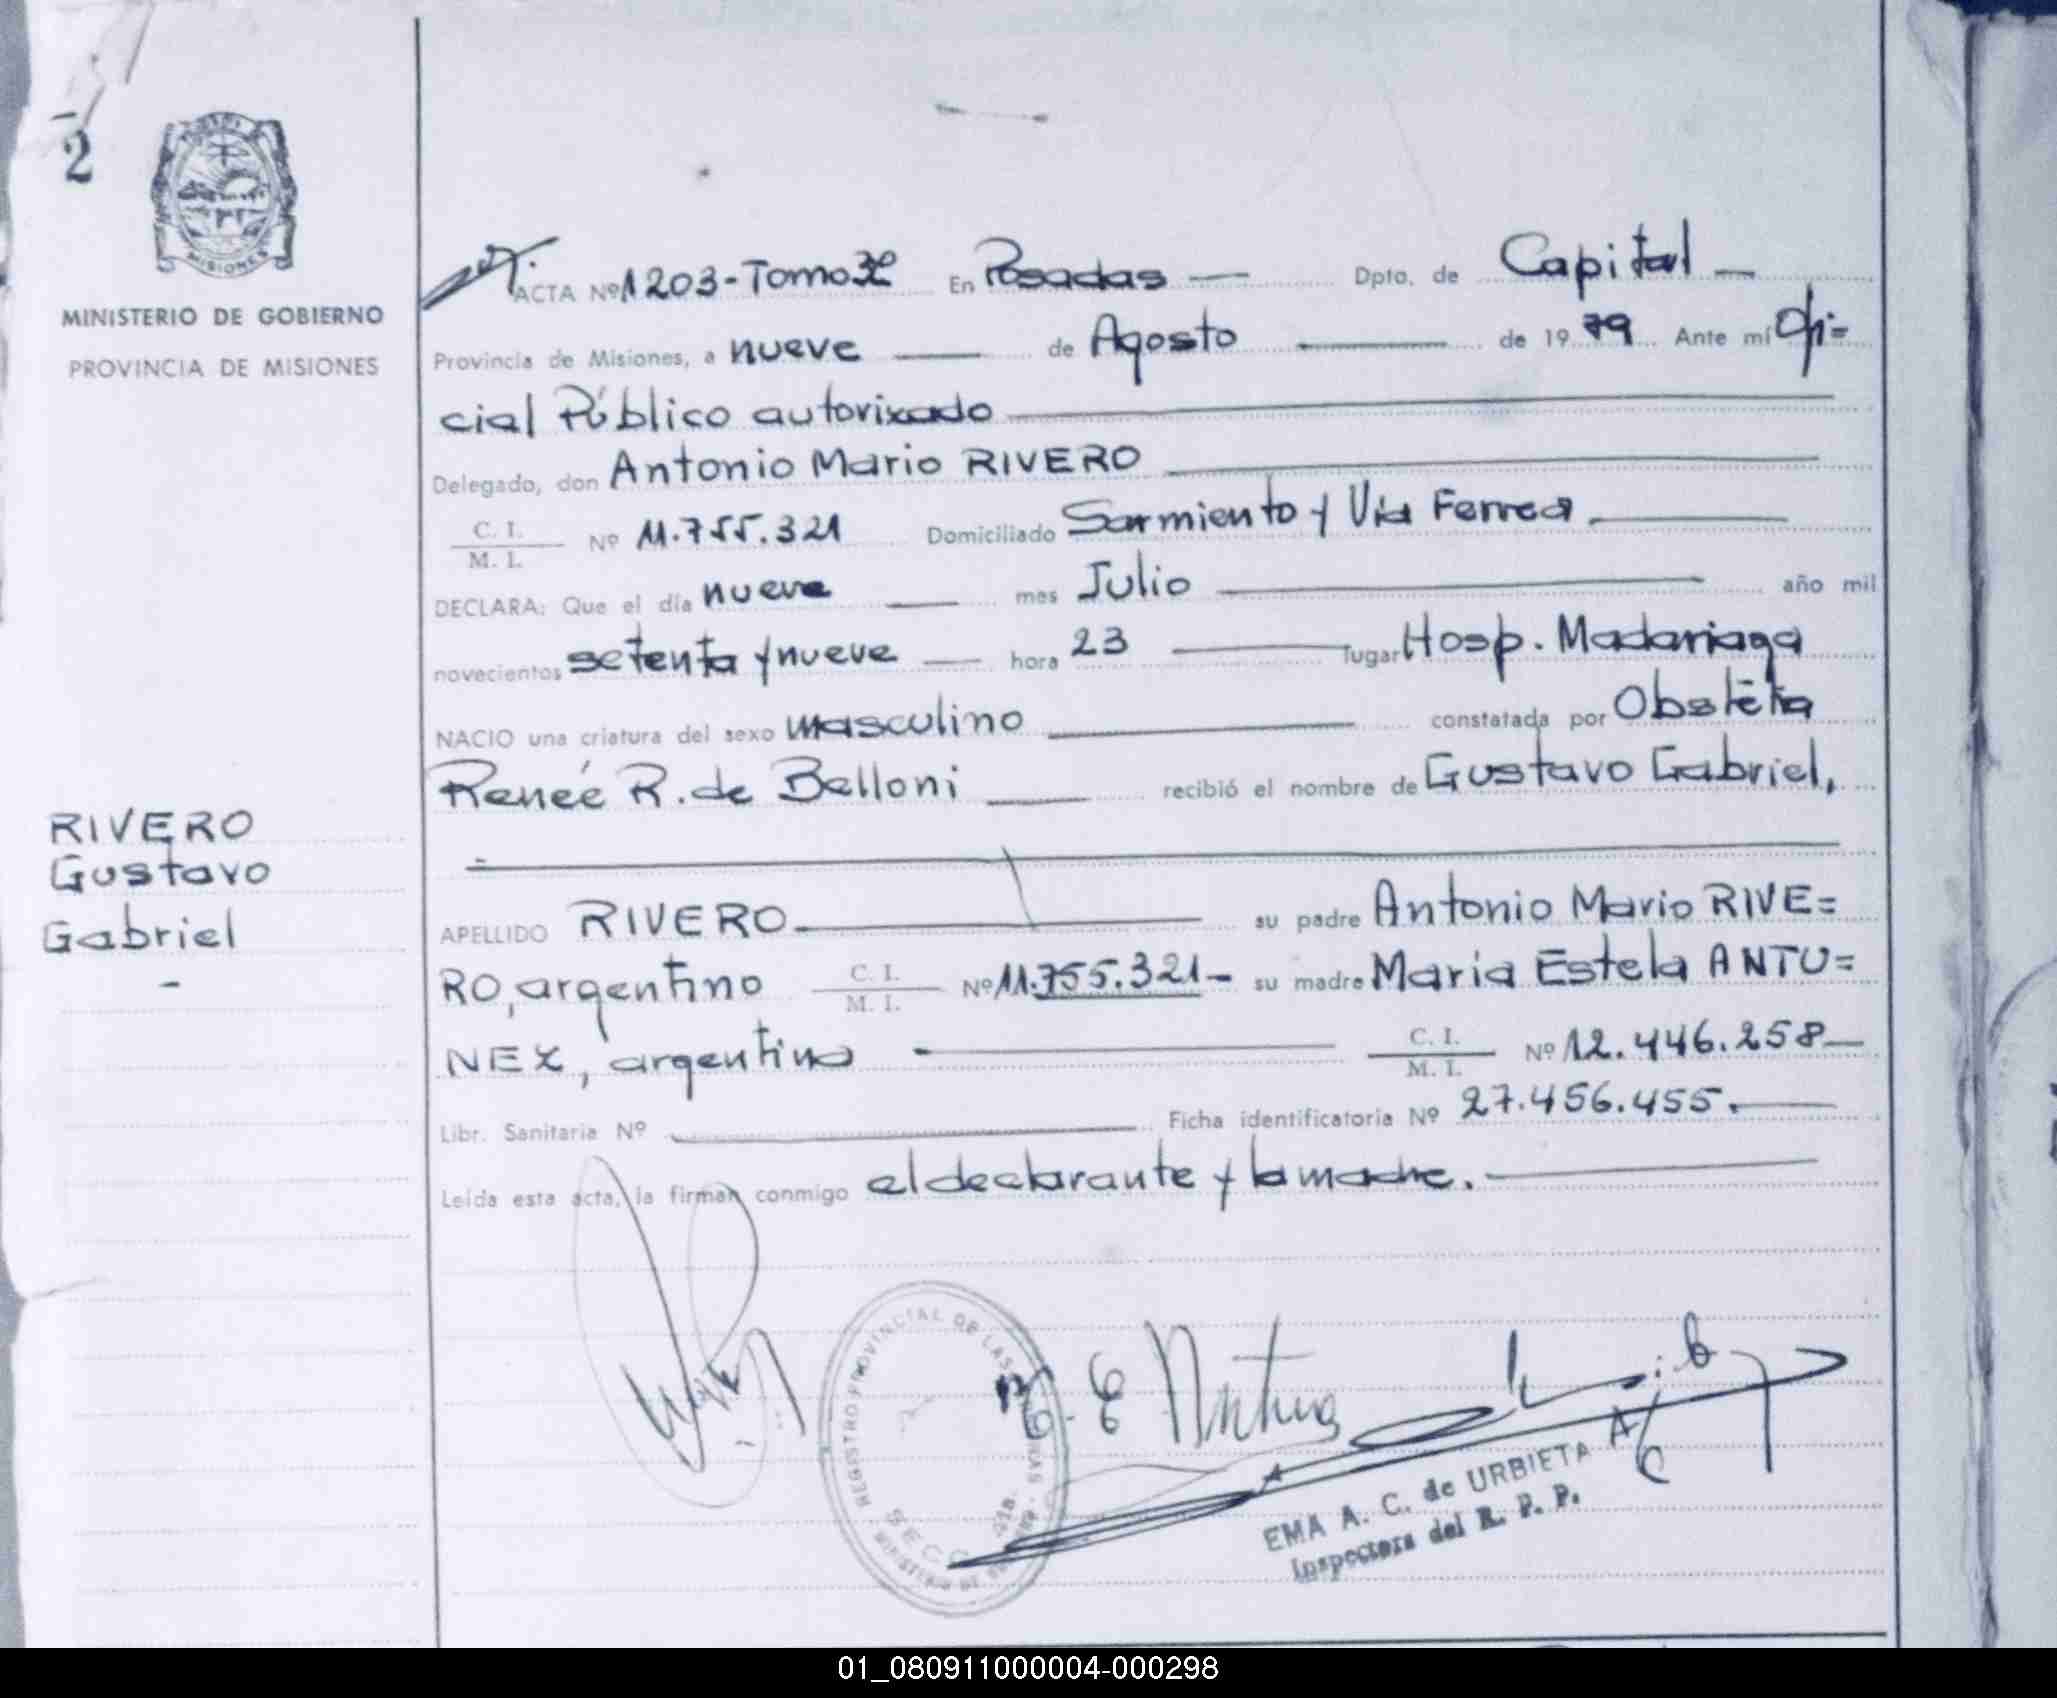 2
MISIONES
MINISTERIO DE GOBIERNO
PROVINCIA DE MISIONES
RIVERO
Gustavo
Gabriel
-
ACTA Nº 1203-Tomo En Posadas — Dpto. de Capital —
Provincia de Misiones, a nueve — de Agosto — de 1979 Ante mí Ofi=
cial Público autorizado
Delegado, don Antonio Mario RIVERO
C. I.
M. I. Nº 11.755.321 Domiciliado Sarmiento y Vía Ferrea
DECLARA: Que el día nueve — mes Julio — año mil
novecientos setenta y nueve — hora 23 — lugar Hosp. Madariaga
NACIO una criatura del sexo masculino — constatada por Obstétra
Renée R. de Belloni — recibió el nombre de Gustavo Gabriel,
APELLIDO RIVERO — su padre Antonio Mario RIVE=
RO, argentino C. I. M. I. Nº 11.755.321- su madre Maria Estela ANTU=
NEZ, argentina — C. I. M. I. Nº 12.446.258—
Libr. Sanitaria Nº — Ficha identificatoria Nº 27.456.455.—
Leída esta acta, la firman conmigo el declarante y la madre.—
REGISTRO PROVINCIAL DE LAS
EMA A. C. de URBIETA A/C
Inspectora del R. P. P.
01_080911000004-000298